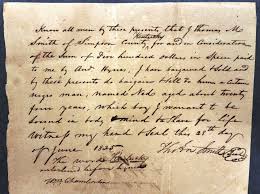 Know all men by these presents, that I Thomas M
Kentucky
Smith of Simpson County, for and in Consideration
of the Sum of Five hundred dollars in Specie paid
to me by And Hynes, I have bargained & Sold and
by these presents do bargain & Sell to him a Certain
negro man, named Ned aged about twenty
four years, which boy I warrant to be
sound in body mind & Slave for life
Witness my hand & Seal this 25th day
of June 1835
The word Kentucky
interlined before signed
Chamberlin